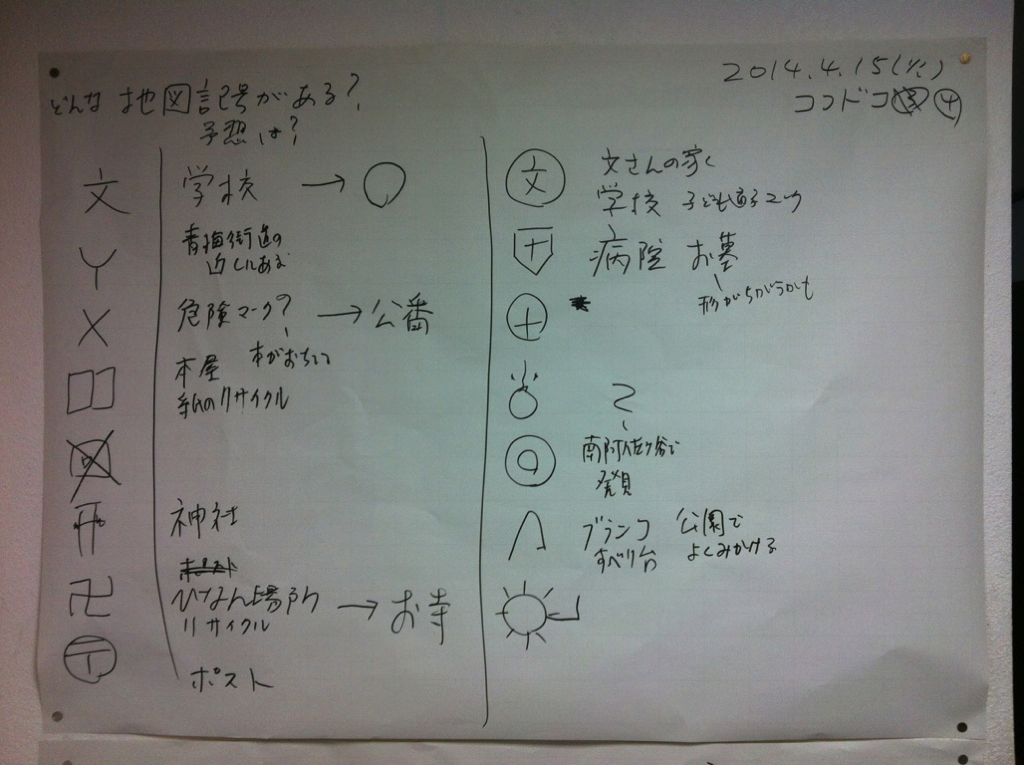 2014.4.15(火)
ココドコ ④
どんな 地図記号がある?
予想は?
文 学校 → ○
青梅街道の
近くにある
Y
X 危険マーク? → 公番
本がおちてて
本屋
紙のリサイクル
神社
卍 ひなん場所 → お寺
リサイクル
〒 ポスト
文 文さんの家
学校 子ども
病院 お墓
形がちがうかも
南阿佐ヶ谷で
発見
ブランコ 公園で
すべり台 よくみかける